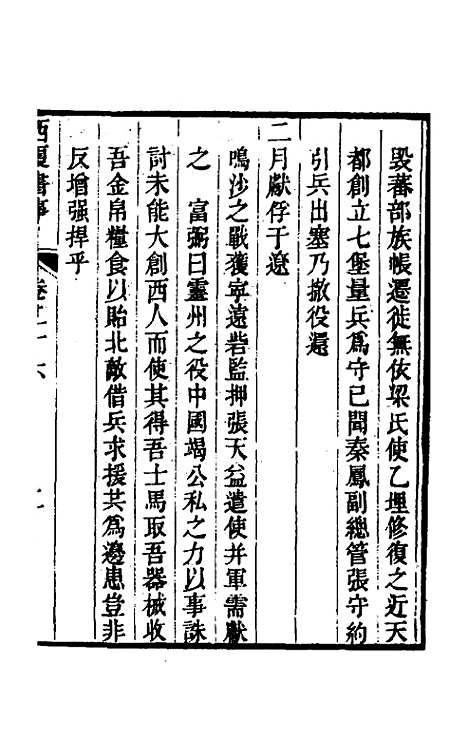 毀蕃部族帳遷徙無依梁氏使乙埋修復之近天
都創立七堡量兵爲守已聞秦鳳副總管張守約
引兵出塞乃撤役還
二月獻俘于遼
鳴沙之戰獲寧遠砦監押張天益遣使并軍需獻
之　富弼曰靈州之役中國竭公私之力以事誅
討未能大創西人而使其得吾士馬取吾器械收
吾金帛糧食以貽北敵借兵求援共爲邊患豈非
反增强捍乎
西夏書事
卷二十六